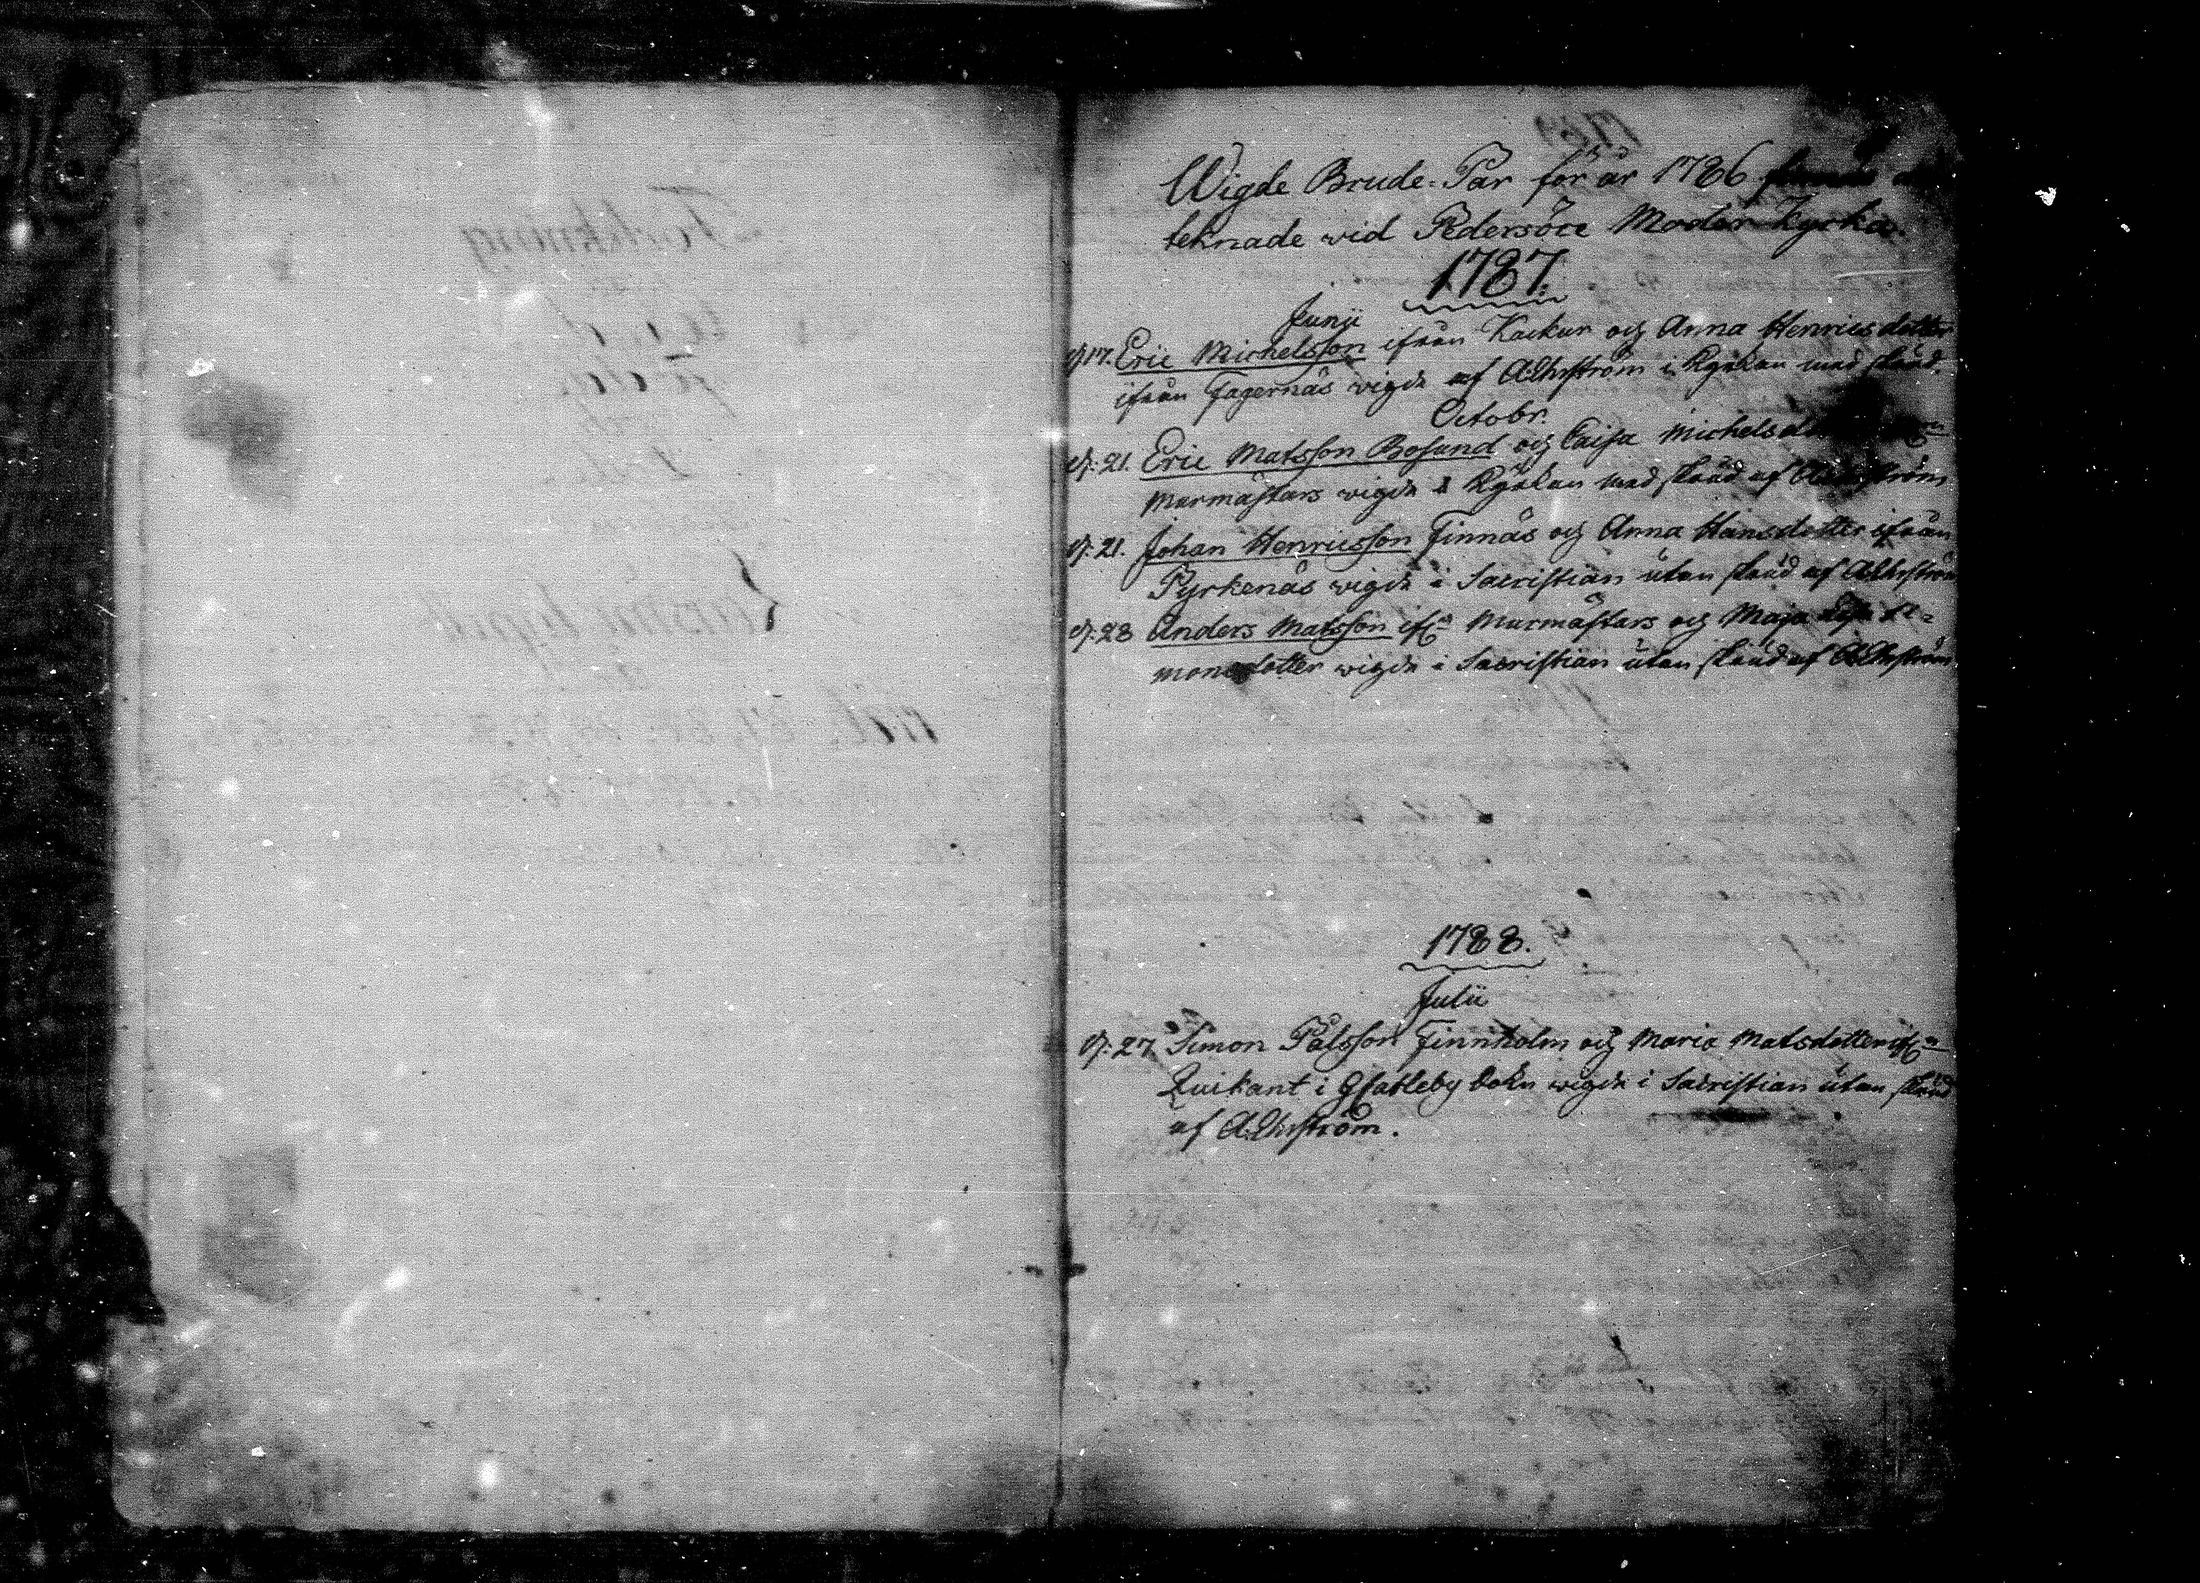 Wigde Brude-Par för år 1786
teknade wid Pedersöre Moder Kyrka.
1787.
Junii
d. 17. Eric Michelsson ifrån Kackur och Anna Henricsdotter
ifrån Fagernäs wigde af A. Ehrström i Kyrkan med skrud.
Octobr.
d: 21. Eric Matsson Bosund och Caisa Michelsdotter
Murmästars wigde i Kyrkan med skrud af A. Ehrström
d: 21. Johan Henricsson Finnäs och Anna Hansdotter ifrån
Pyrkenäs wigde i Sacristian utan skrud af A. Ehrström
d: 28 Anders Matsson ifrn Murmästars och Maja Si-
monsdotter wigde i Sacristian utan skrud af A. Ehrström
1788.
Julii
d: 27 Simon Pålsson Finnholm och Maria Matsdotter ifrn
Quikant i Esse wigde i Sacristian utan skrud
af A. Ehrström.